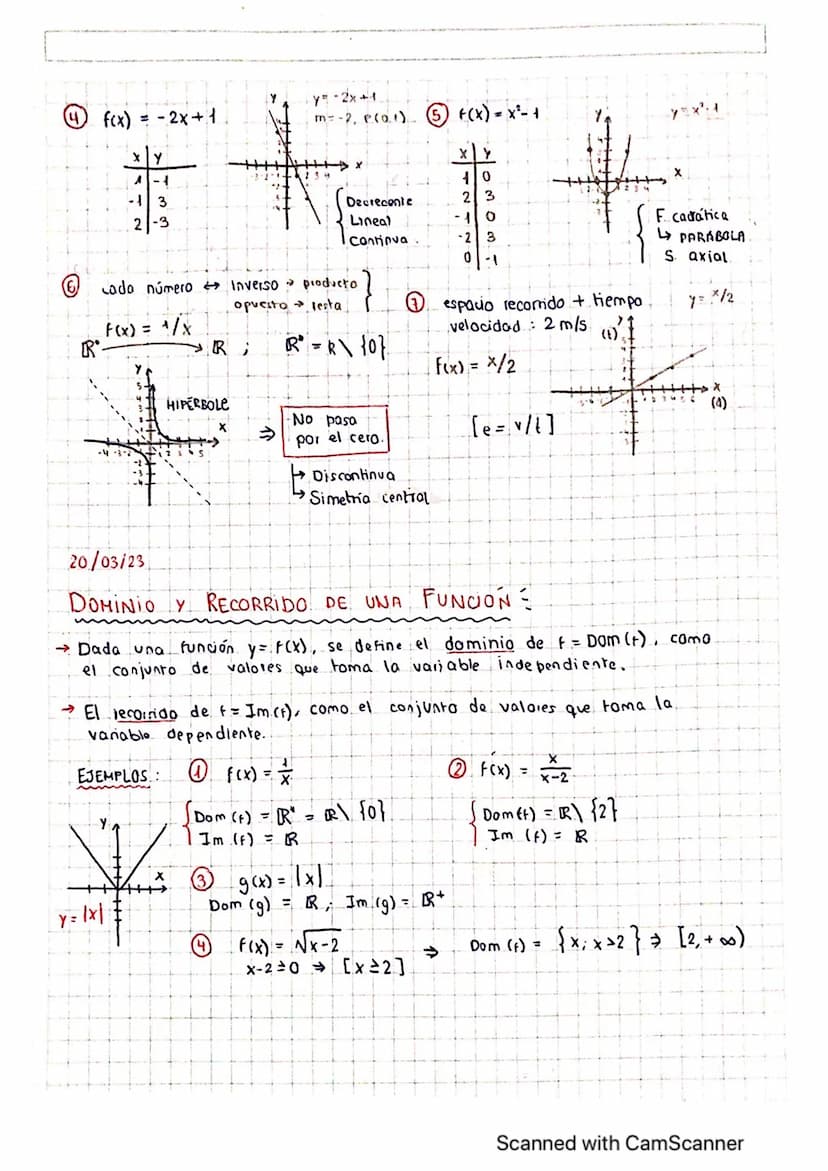 ④ f(x) = -2x+1
x | y
1 | -1
-1 | 3
2 | -3
y = -2x+1
m=-2, P(0,1)
Y
x
Decreciente
Lineal
Continua.
⑤ f(x) = x²-1
x | y
1 | 0
2 | 3
-1 | 0
-2 | 3
0 | -1
y = x²-1
Y
x
F. cadrática
↳ PARÁBOLA
S. axial
⑥ cada número ↔ Inverso → producto
opuesto → resta
f(x) = 1/x
R* → R ; R* = R \ {0}
Y
HIPÉRBOLE
x
⇒ No pasa
por el cero.
↳ Discontinua
↳ Simetría central
⑦ espacio recorrido + tiempo
velocidad : 2 m/s
f(x) = x/2
[e = v/t]
y = x/2
(t)
x
(d)
20/03/23
DOMINIO Y RECORRIDO DE UNA FUNCIÓN:
→ Dada una función y=f(x), se define el dominio de f = Dom(f), como
el conjunto de valores que toma la variable independiente.
→ El recorrido de f = Im(f), como el conjunto de valores que toma la
variable dependiente.
EJEMPLOS:
① f(x) = 1/x
Dom (f) = R* = R\ {0}
Im (f) = R
② f(x) = x/x-2
Dom(f) = R\ {2}
Im (f) = R
Y
x
y = |x|
③ g(x) = |x|
Dom (g) = R ; Im (g) = R+
④ f(x) = √x-2
x-2≥0 ⇒ [x≥2]
⇒ Dom (f) = {x; x>2} ⇒ [2,+∞)
Scanned with CamScanner